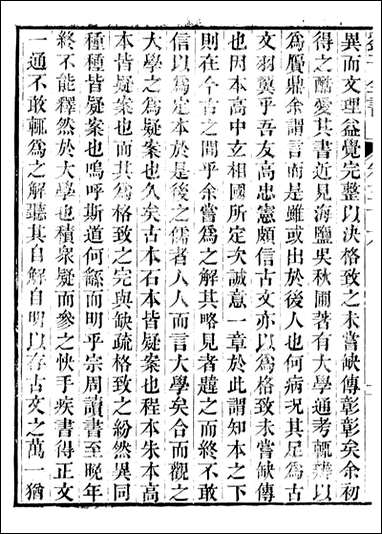 異而文理益覺完整以決格致之未嘗缺傳彰彰矣余初
得之酷愛其書近見海鹽吳秋圃著有大學通考輒辨以
為贋鼎余謂言而是雖或出於後人也何病況其足為古
文羽翼乎吾友高忠憲頗信古文亦以為格致未嘗缺傳
也因本高中玄相國所定次誠意一章於此謂知本之下
則在今古之間乎余嘗為之解其略見者韙之而終不敢
信以為定本於是後之儒者人人而言大學矣合而觀之
大學之為疑案也久矣古本石本皆疑案也程本朱本高
本皆疑案也而其為格致之完與缺疏格致之紛然異同
種種皆疑案也嗚呼斯道何繇而明乎宗周讀書至晚年
終不能釋然於大學也積衆疑而參之快手疾書得正文
一通不敢輒為之解聽其自解自明以存古文之萬一猶